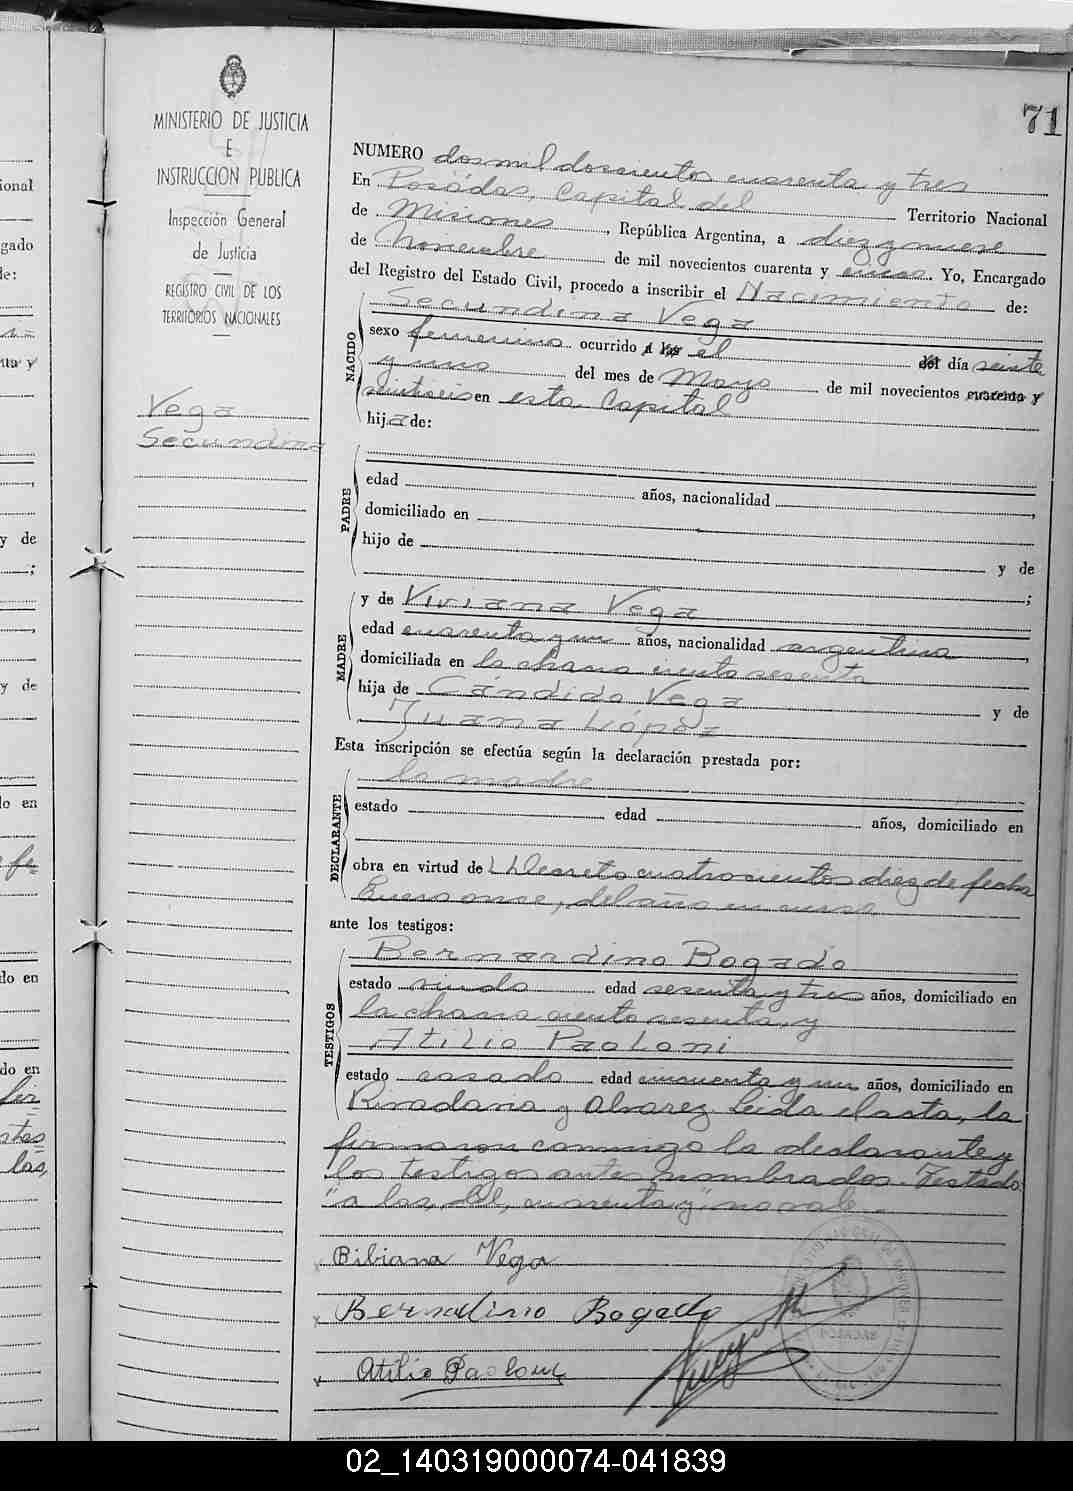 71
MINISTERIO DE JUSTICIA
E
INSTRUCCION PUBLICA
Inspección General
de Justicia
REGISTRO CIVIL DE LOS
TERRITORIOS NACIONALES
Vega
Secundina
NUMERO dos mil doscientos cuarenta y tres
En Posadas, Capital del Territorio Nacional
de Misiones, República Argentina, a diez y nueve
de Noviembre de mil novecientos cuarenta y cinco. Yo, Encargado
del Registro del Estado Civil, procedo a inscribir el Nacimiento de:
NACIDO
Secundina Vega
sexo femenino ocurrido a las el del día veinte
y uno del mes de Mayo de mil novecientos cuarenta y
veintiseis en esta Capital
hija de:
PADRE
edad años, nacionalidad ,
domiciliado en
hijo de y de
;
MADRE
y de Viviana Vega
edad cuarenta y un años, nacionalidad argentina,
domiciliada en la chacra ciento sesenta
hija de Cándido Vega y de
Juana López
Esta inscripción se efectúa según la declaración prestada por:
DECLARANTE
la madre
estado edad años, domiciliado en
obra en virtud de l Decreto cuatrocientos diez de fecha
Enero once, del año en curso
ante los testigos:
TESTIGOS
Bernardino Bogado
estado viudo edad sesenta y tres años, domiciliado en
la chacra ciento sesenta, y
Atilio Paoloni
estado casado edad cincuenta y un años, domiciliado en
Rivadavia y Alvarez. Leida el acta, la
firmaron conmigo la declarante y
los testigos antes nombrados. Testado:
"a las, del, cuarenta y" no vale.
Bibiana Vega
Bernardino Bogado
Atilio Paoloni
ional
gado
de:
y de
;
y de
do en
do en
do en
02_140319000074-041839